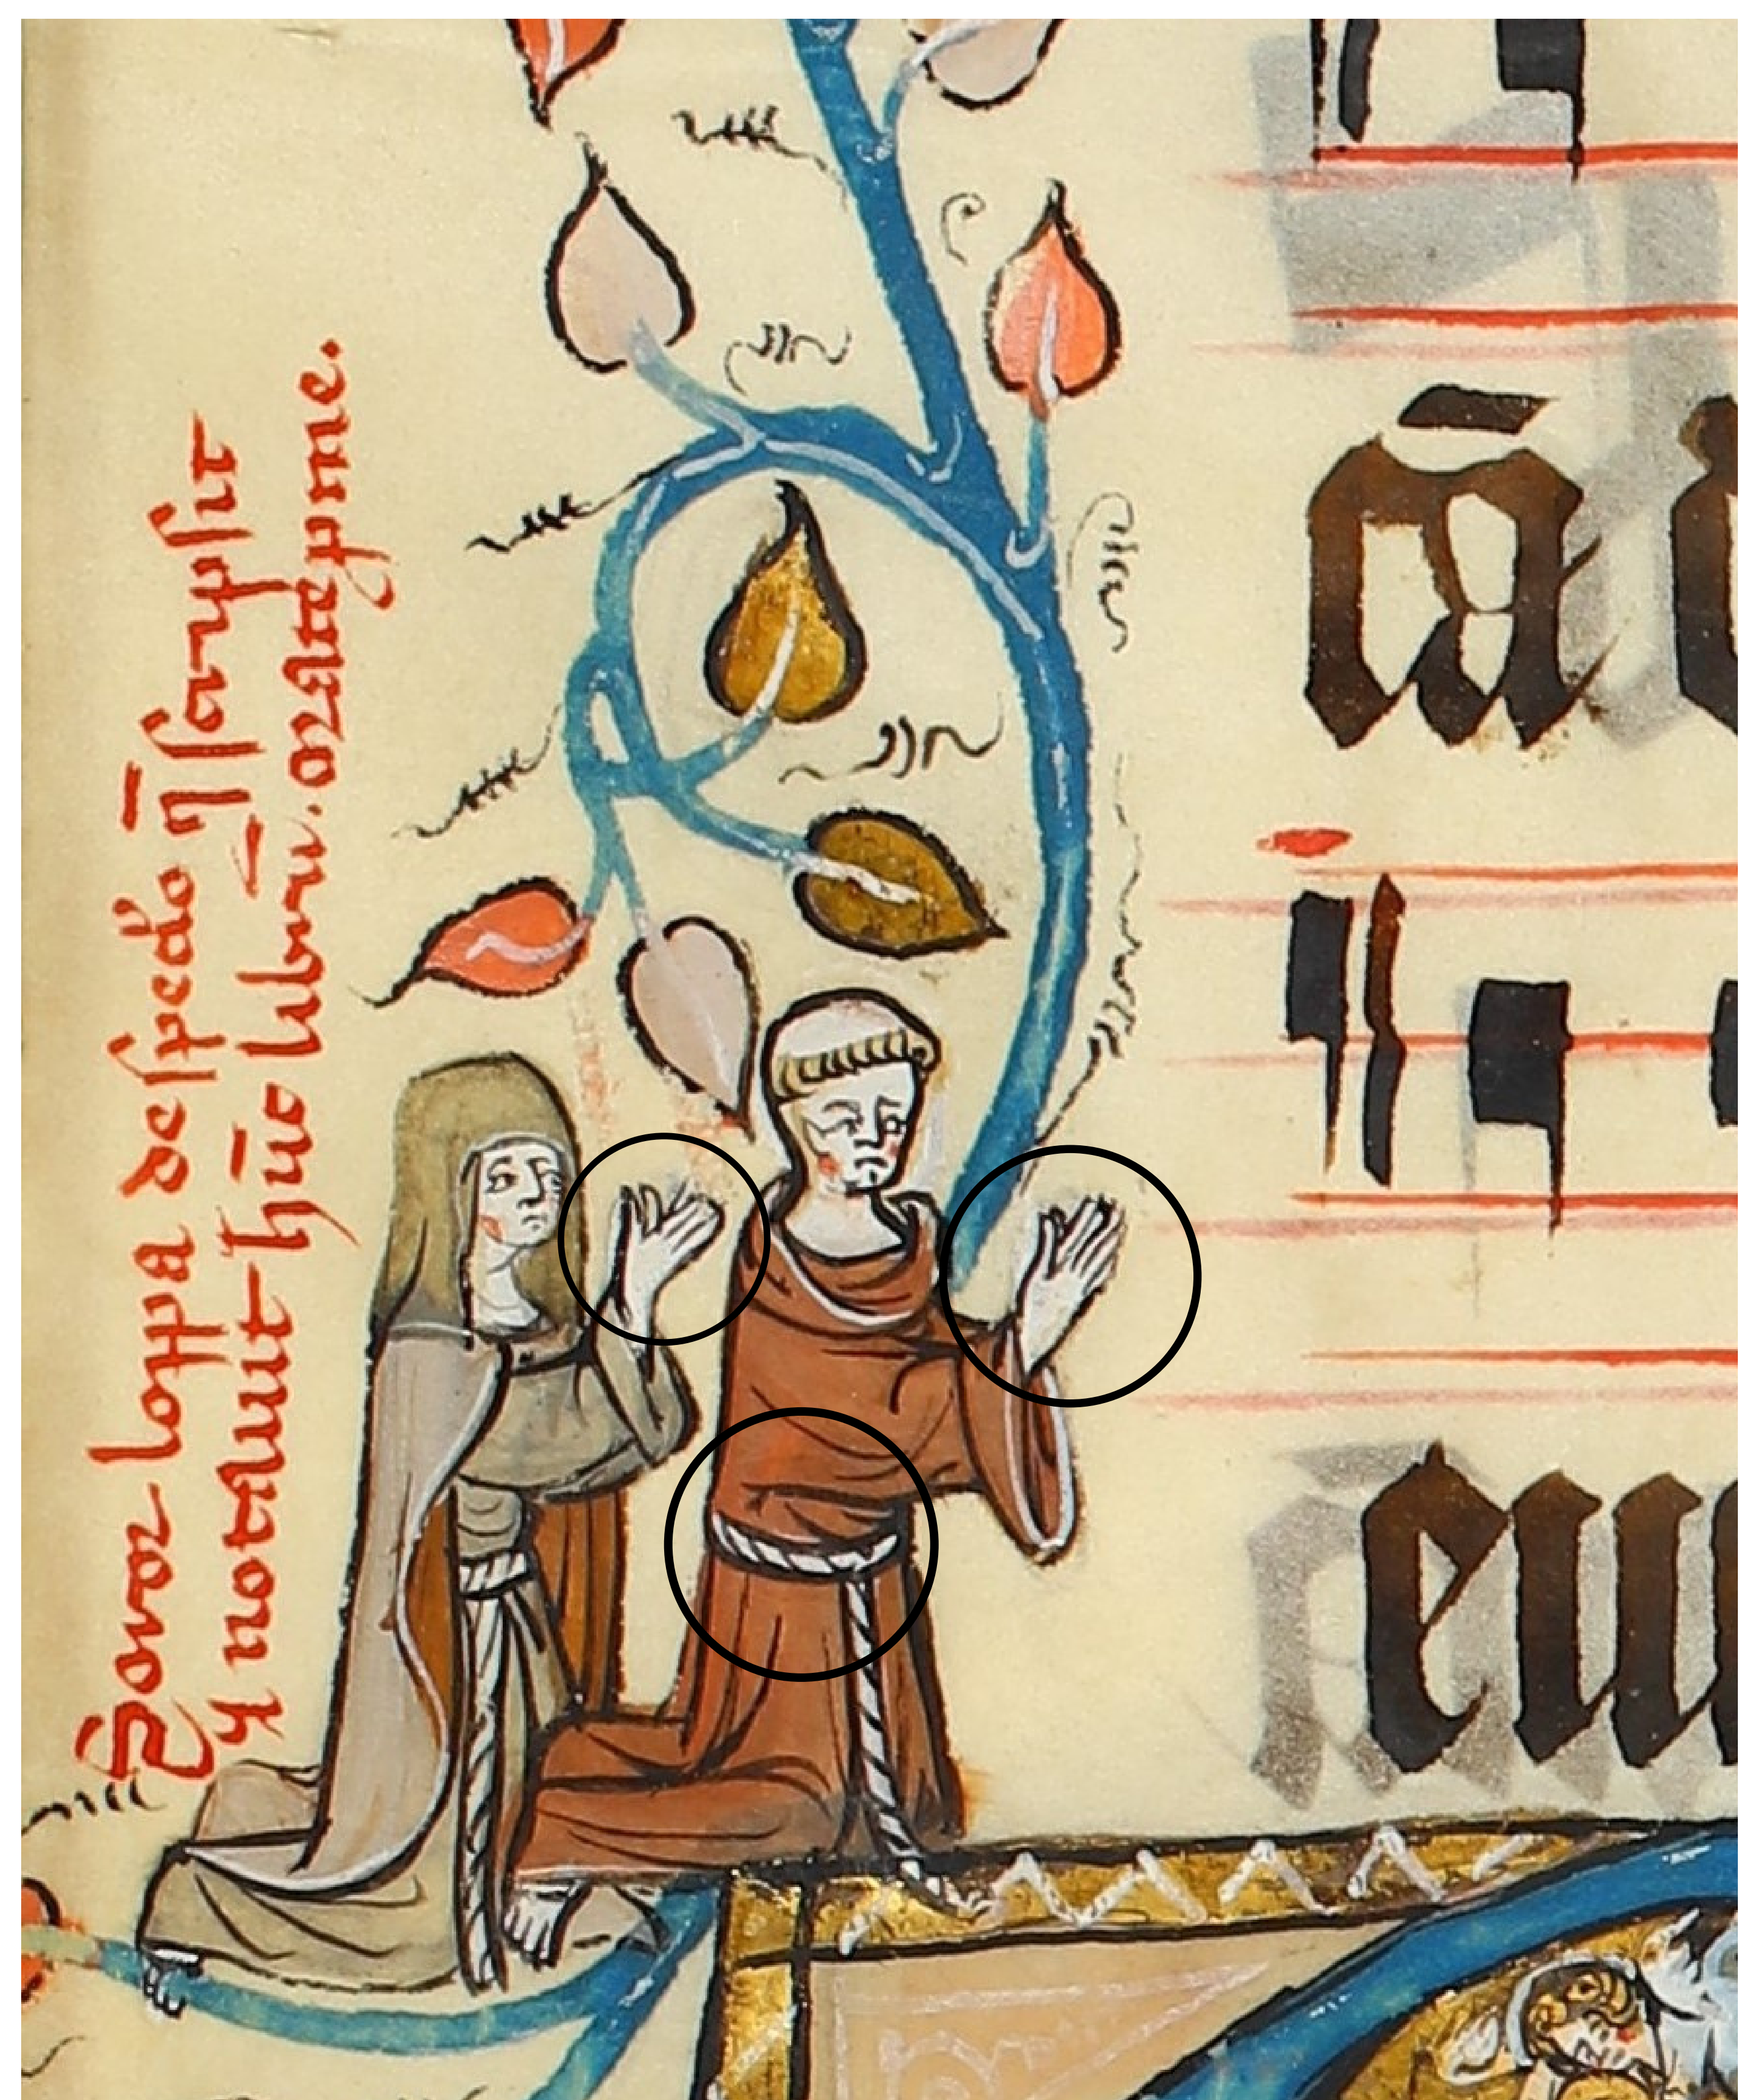 Soror loppa de speclo q̄ scripsit
⁊ notauit hūc librū. orate ꝑ me.
cā